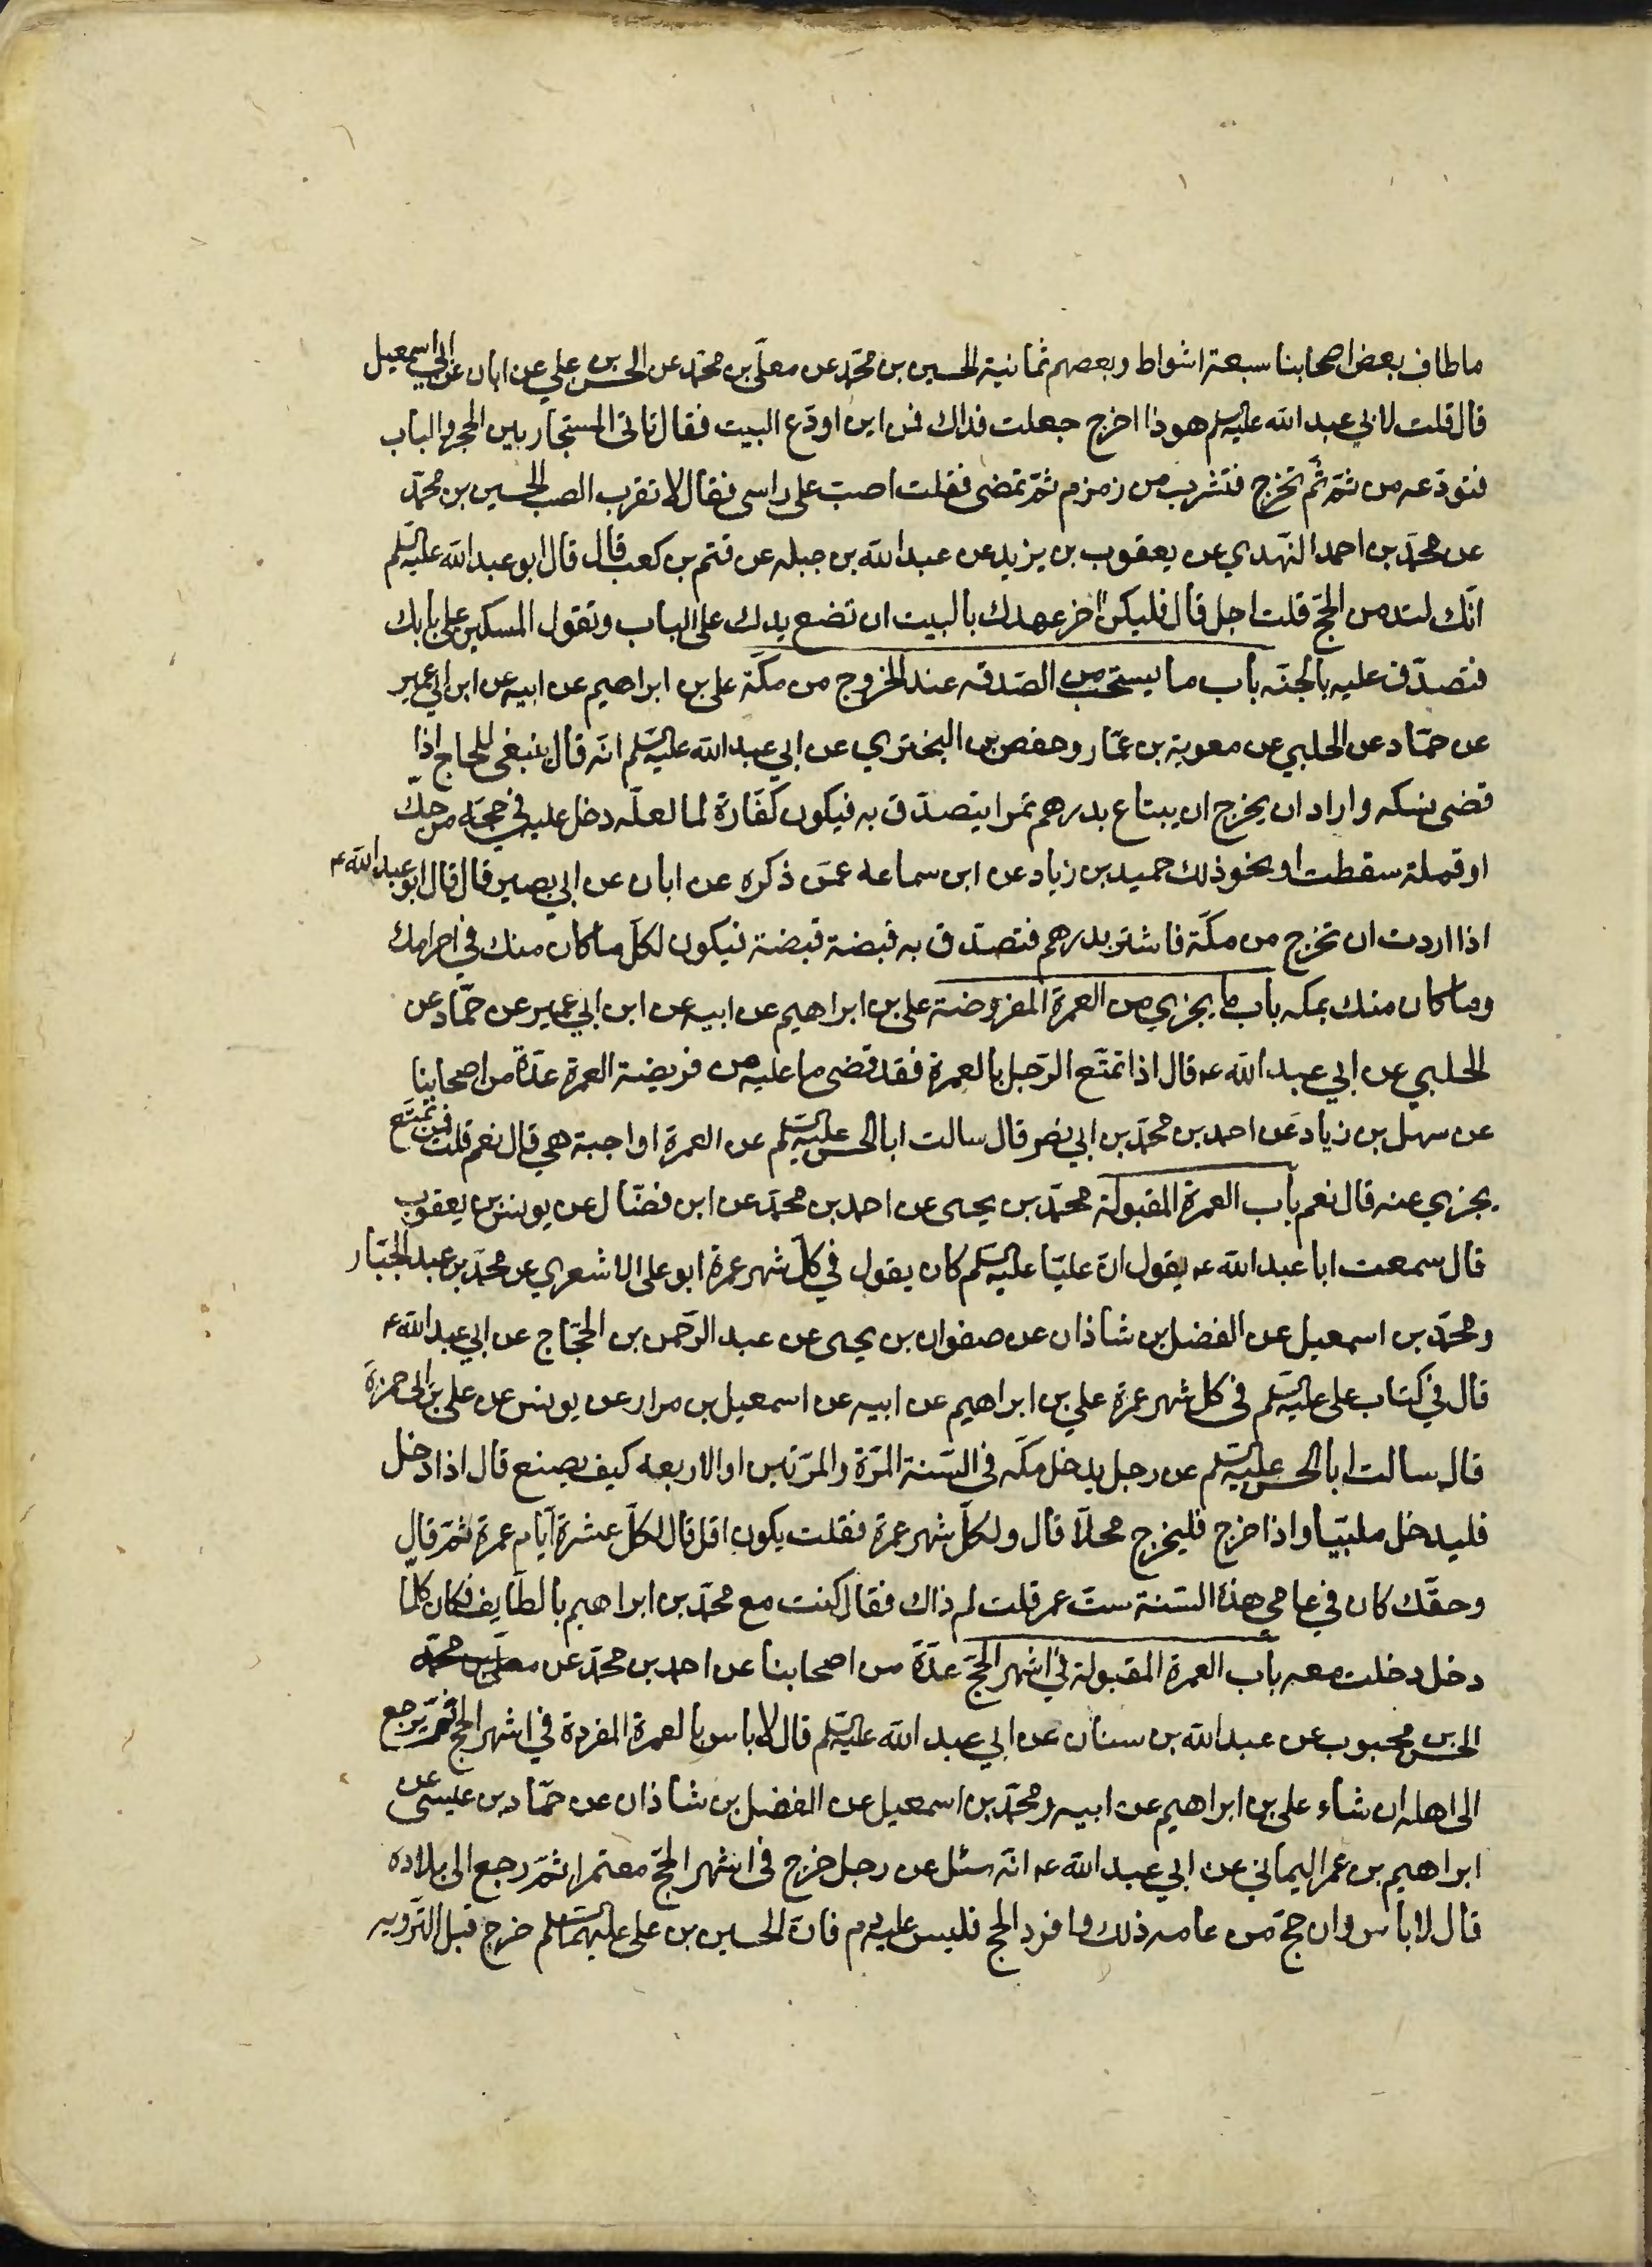 ما طاف بعض اصحابنا سبعة اشواط وبعضهم ثمانية الحسين بن محمّد عن معلّى بن محمّد عن الحسن بن علي عن ابان عن ابي اسمعيل
قال قلت لابي عبد الله عليه السلم هوذا اخرج جعلت فداك فمن اين اودّع البيت فقال تاتى المستجار بين الحجر والباب
فتودّعه من ثمّ ثم تخرج فتشرب من زمزم ثمّ تمضى فقلت اصبّ على راسى فقال لا تقرب الصب الحسين بن محمّد
عن محمّد بن احمد النهدي عن يعقوب بن يزيد عن عبد الله بن جبله عن قثم بن كعب قال قال ابو عبد الله عليه السلم
انّك لتدمن الحجّ قلت اجل قال فليكن اخر عهدك بالبيت ان تضع يدك على الباب وتقول المسكين على بابك
فتصدّق عليه بالجنّه باب ما يستحب من الصّدقه عند الخروج من مكّة على بن ابراهيم عن ابيه عن ابن ابي عمير
عن حمّاد عن الحلبي عن معوية بن عمّار وحفص بن البختري عن ابي عبد الله عليه السّلم انّه قال ينبغى للحاج اذا
قضى نسكه واراد ان يخرج ان يبتاع بدرهم تمرا يتصدّق به فيكون كفّارة لما لعلّه دخل عليه في حجّه من حكّ
او قملة سقطت او نحو ذلك حميد بن زياد عن ابن سماعه عمّن ذكره عن ابان عن ابي بصير قال قال ابو عبد الله ع
اذا اردت ان تخرج من مكّة فاشتر بدرهم فتصدّق به قبضة قبضة فيكون لكلّ ما كان منك في احرامك
وما كان منك بمكه باب ما يجزي من العمرة المفروضة على بن ابراهيم عن ابيه عن ابن ابي عمير عن حمّاد عن
الحلبي عن ابي عبد الله ع قال اذا تمتّع الرّجل بالعمرة فقد قضى ما عليه من فريضة العمرة عدّة من اصحابنا
عن سهل بن زياد عن احمد بن محمّد بن ابي نصر قال سالت ابا الحسن عليه السّلم عن العمرة اواجبة هي قال نعم قلت فمن تمتّع
يجزي عنه قال نعم باب العمرة المقبولة محمّد بن يحيى عن احمد بن محمّد عن ابن فضّال عن يونس بن يعقوب
قال سمعت ابا عبد الله ع يقول انّ عليّا عليه السّلم كان يقول في كلّ شهر عمرة ابو على الاشعري عن محمّد بن عبد الجبّار
ومحمّد بن اسمعيل عن الفضل بن شاذان عن صفوان بن يحيى عن عبد الرّحمن بن الحجّاج عن ابي عبد الله ع
قال في كتاب على عليه السّلم في كل شهر عمرة علي بن ابراهيم عن ابيه عن اسمعيل بن مرار عن يونس عن على بن ابى حمزة
قال سالت ابا الحسن عليه السّلم عن رجل يدخل مكّه في السّنة المرّة والمرّتين او الاربعه كيف يصنع قال اذا دخل
فليدخل ملبّيا واذا خرج فليخرج محلّا قال ولكلّ شهر عمرة فقلت يكون اقل قال لكلّ عشرة ايّام عمرة ثمّ قال
وحقّك كان في عامى هذه السّنة ستّ عمر قلت لم ذاك فقال كنت مع محمّد بن ابراهيم بالطّايف فكان كلّما
دخل دخلت معه باب العمرة المقبولة في اشهر الحجّ عدّة من اصحابنا عن احمد بن محمّد عن معلّى بن محمّد
الحسن بن محبوب عن عبد الله بن سنان عن ابي عبد الله عليه السّلم قال لا باس بالعمرة المفردة في اشهر الحج ثمّ يرجع
الى اهله ان شاء على بن ابراهيم عن ابيه ومحمّد بن اسمعيل عن الفضل بن شاذان عن حمّاد بن عيسى عن
ابراهيم بن عمر اليماني عن ابي عبد الله ع انّه سئل عن رجل خرج في اشهر الحجّ معتمرا ثمّ رجع الى بلاده
قال لا باس وان حجّ من عامه ذلك وافرد الحج فليس عليه دم فانّ الحسين بن على عليهما السّلم خرج قبل التّرويه